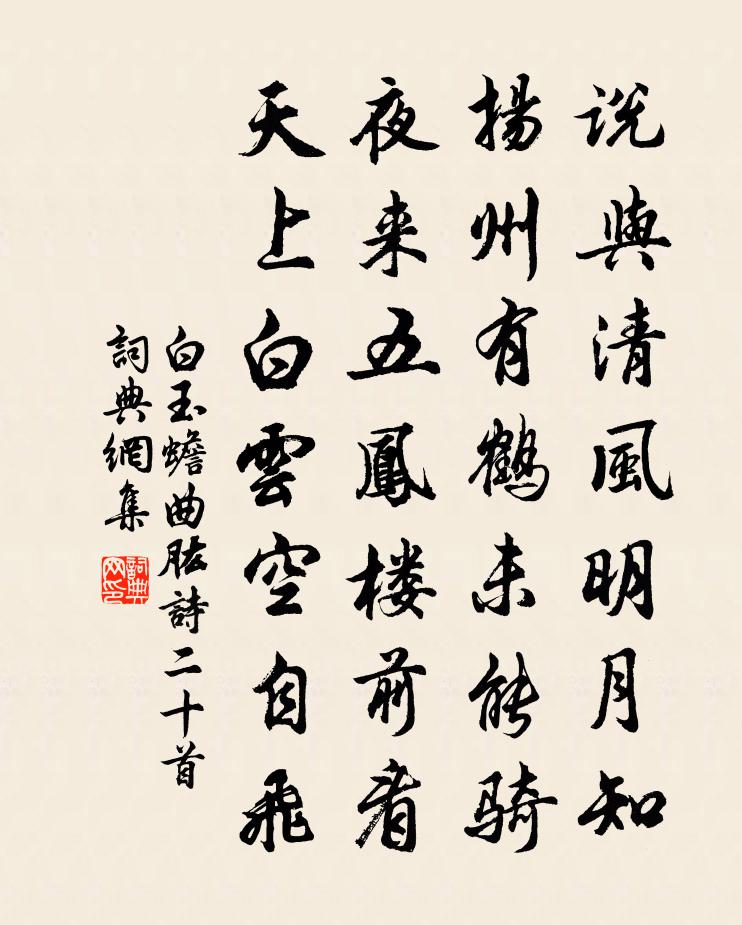 说與清風明月知
揚州有鶴未能骑
夜来五鳳楼前看
天上白雲空自飛
白玉蟾曲肱詩二十首
詞典網集
詞典网印